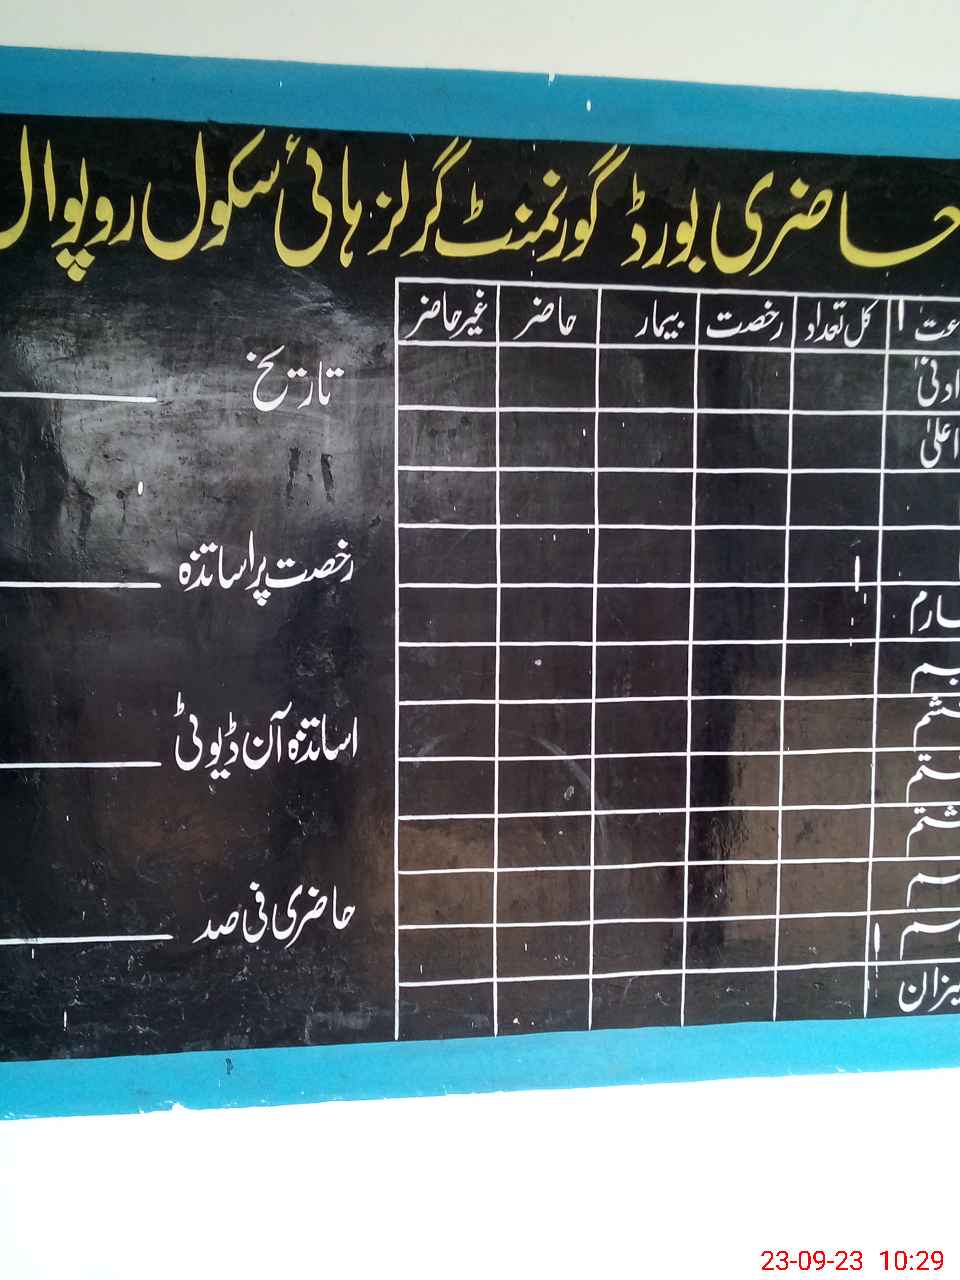 حاضری بورڈ گورنمنٹ گرلز ہائی سکول روپوال
کل تعداد رخصت بیمار حاضر غیر حاضر
ادنیٰ
اعلیٰ
تاریخ
رخصت پر اساتذہ
اساتذہ آن ڈیوٹی
حاضری فی صد
23-09-23 10:29